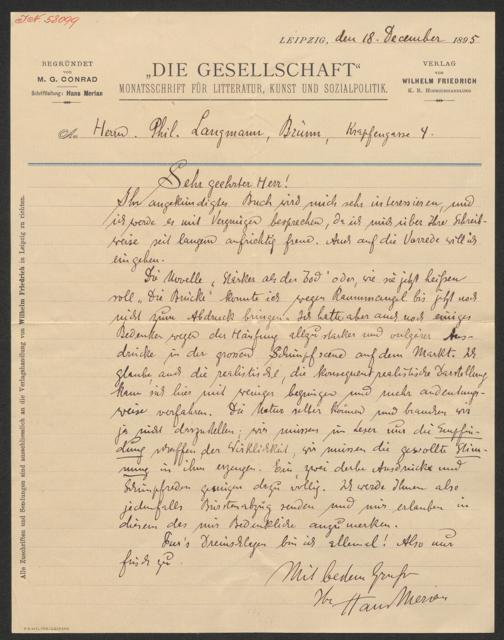 I.N. 58099
LEIPZIG, den 18. December 1895
BEGRÜNDET
VON
M. G. CONRAD
Schriftleitung: Hans Merian
„DIE GESELLSCHAFT“
MONATSSCHRIFT FÜR LITTERATUR, KUNST UND SOZIALPOLITIK.
VERLAG
VON
WILHELM FRIEDRICH
K. R. HOFBUCHHANDLUNG
An Herrn Phil. Langmann, Brünn, Krapfengasse 4.
Sehr geehrter Herr!
Ihr angekündigtes Buch wird mich sehr interessieren, und
ich werde es mit Vergnügen besprechen, da ich mich über Ihre Schreib-
weise seit langem aufrichtig freue. Auch auf die Vorrede will ich
eingehen.
Die Novelle „Stärker als der Tod“ oder, wie sie jetzt heißen
soll „Die Brücke“ konnte ich wegen Raummangel bis jetzt noch
nicht zum Abdruck bringen. Ich hatte aber auch noch einiges
Bedenken wegen der Häufung allzu starker und vulgärer Aus-
drücke in der grossen Schimpfscene auf dem Markt. Ich
glaube auch die realistische, die konsequent realistische Darstellung
kann sich hier mit weniger begnügen und mehr andeutungs-
weise verfahren. Die Natur selber können und brauchen wir
ja nicht darzustellen; wir müssen im Leser nur die Empfin-
dung der Wirklichkeit, wir müssen die gewollte Stim-
mung in ihm erzeugen. Ein, zwei derbe Ausdrücke und
Schimpfreden genügen dazu völlig. Ich werde Ihnen also
jedenfalls Bürstenabzug senden und mir erlauben in
diesem das mir Bedenkliche anzumerken.
Fur's Dreinschlagen bin ich allemal! Also nur
frisch zu
Mit bestem Gruß
Ihr
Hans Merian
Alle Zuschriften und Sendungen sind ausschliesslich an die Verlagshandlung von Wilhelm Friedrich in Leipzig zu richten.